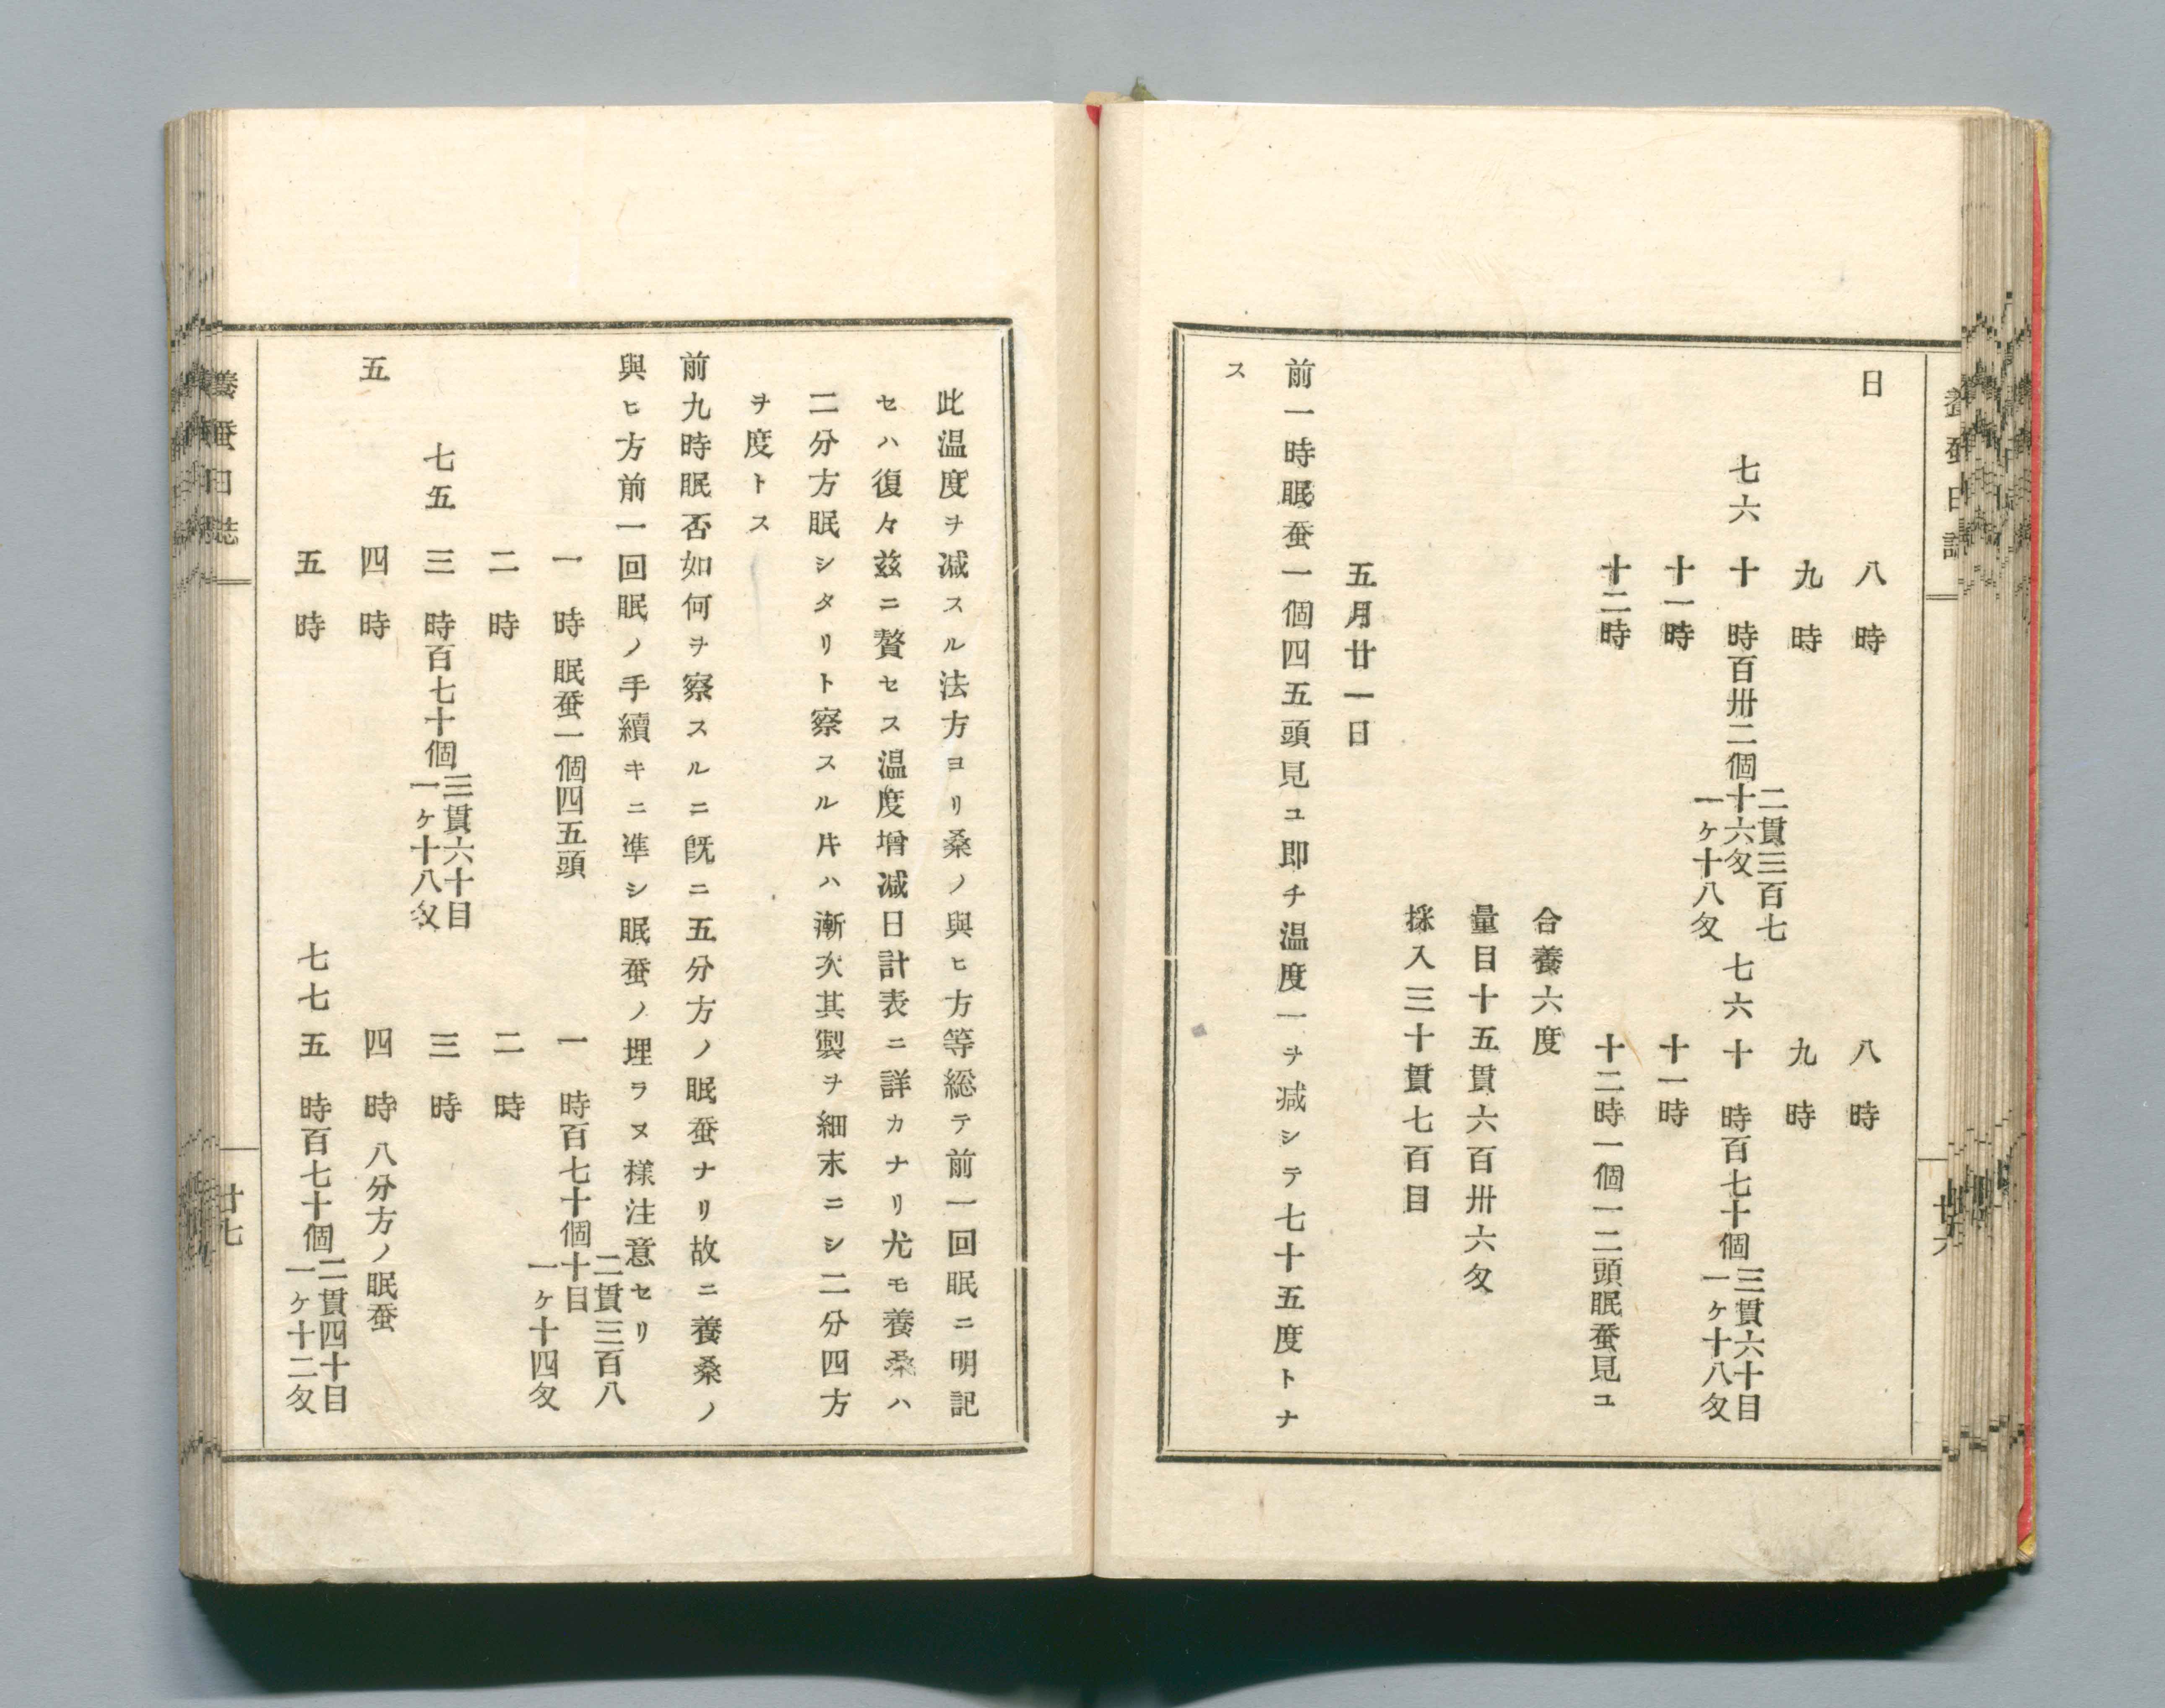 日
八時 八時
九時 九時
七六 十時百卅二個二貫三百七十六匁一ヶ十八匁 七六 十時百七十個三貫六十目一ヶ十八匁
十一時 十一時
十二時 十二時一個一二頭眠蚕見ユ
合養六度
量目十五貫六百卅六匁
採入三十貫七百目
五月廿一日
前一時眠蚕一個四五頭見ユ即チ温度一ヲ减シテ七十五度トナ
ス
此温度ヲ减スル法方ヨリ桑ノ與ヒ方等総テ前一回眠ニ明記
セハ復々茲ニ贅セス温度增减日計表ニ詳カナリ尤モ養桑ハ
二分方眠シタリト察スル片ハ漸次其製ヲ細末ニシ二分四方
ヲ度トス
前九時眠否如何ヲ察スルニ既ニ五分方ノ眠蚕ナリ故ニ養桑ノ
與ヒ方前一回眠ノ手續キニ準シ眠蚕ノ埋ラヌ樣注意セリ
一時 眠蚕一個四五頭 一時百七十個二貫三百八十目一ヶ十四匁
二時 二時
七五 三時百七十個三貫六十目一ヶ十八匁 三時
五 四時 四時 八分方ノ眠蚕
五時 七七 五時百七十個二貫四十目一ヶ十二匁
養蚕日誌 廿七